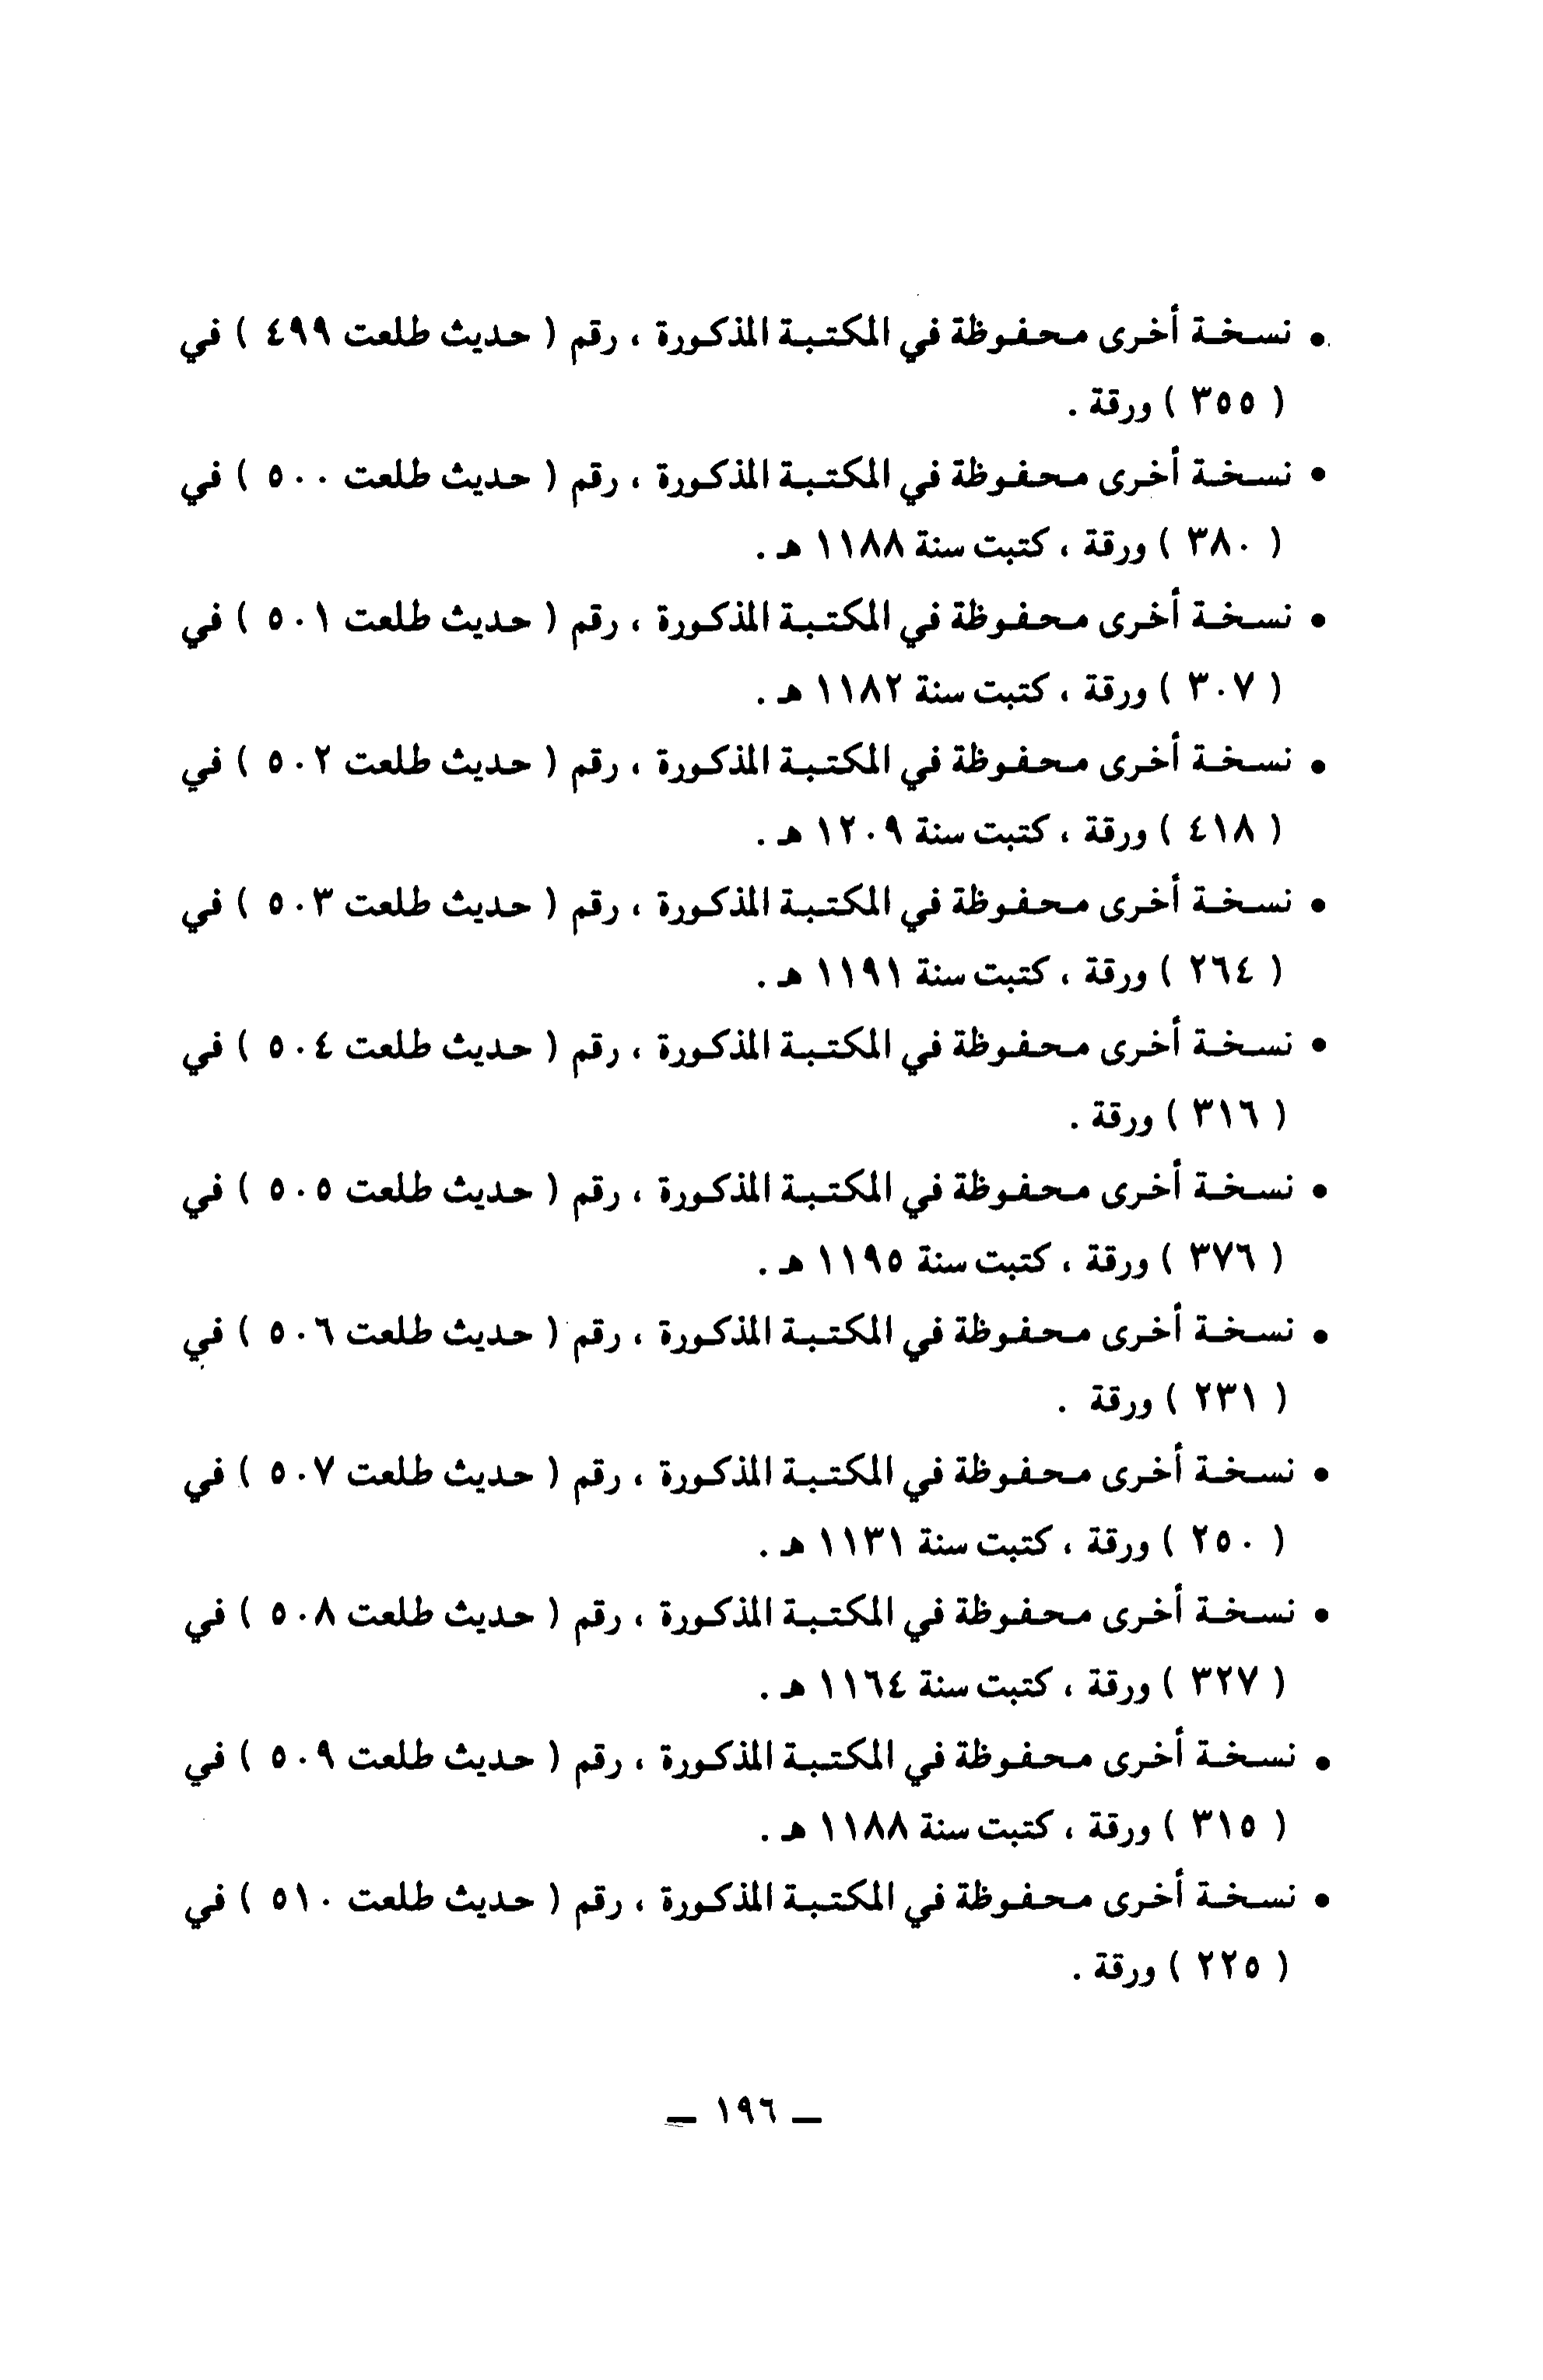 • نسخة أخرى محفوظة في المكتبة المذكورة ، رقم ( حديث طلعت ٤٩٩ ) في
( ٣٥٥ ) ورقة .
• نسخة أخرى محفوظة في المكتبة المذكورة ، رقم ( حديث طلعت ٥٠٠ ) في
( ٣٨٠ ) ورقة ، كتبت سنة ١١٨٨ هـ .
• نسخة أخرى محفوظة في المكتبة المذكورة ، رقم ( حديث طلعت ٥٠١ ) في
( ٣٠٧ ) ورقة ، كتبت سنة ١١٨٢ هـ .
• نسخة أخرى محفوظة في المكتبة المذكورة ، رقم ( حديث طلعت ٥٠٢ ) في
( ٤١٨ ) ورقة ، كتبت سنة ١٢٠٩ هـ .
• نسخة أخرى محفوظة في المكتبة المذكورة ، رقم ( حديث طلعت ٥٠٣ ) في
( ٢٦٤ ) ورقة ، كتبت سنة ١١٩١ هـ .
• نسخة أخرى محفوظة في المكتبة المذكورة ، رقم ( حديث طلعت ٥٠٤ ) في
( ٣١٦ ) ورقة .
• نسخة أخرى محفوظة في المكتبة المذكورة ، رقم ( حديث طلعت ٥٠٥ ) في
( ٣٧٦ ) ورقة ، كتبت سنة ١١٩٥ هـ .
• نسخة أخرى محفوظة في المكتبة المذكورة ، رقم ( حديث طلعت ٥٠٦ ) في
( ٢٣١ ) ورقة .
• نسخة أخرى محفوظة في المكتبة المذكورة ، رقم ( حديث طلعت ٥٠٧ ) في
( ٢٥٠ ) ورقة ، كتبت سنة ١١٣١ هـ .
• نسخة أخرى محفوظة في المكتبة المذكورة ، رقم ( حديث طلعت ٥٠٨ ) في
( ٣٢٧ ) ورقة ، كتبت سنة ١١٦٤ هـ .
• نسخة أخرى محفوظة في المكتبة المذكورة ، رقم ( حديث طلعت ٥٠٩ ) في
( ٣١٥ ) ورقة ، كتبت سنة ١١٨٨ هـ .
• نسخة أخرى محفوظة في المكتبة المذكورة ، رقم ( حديث طلعت ٥١٠ ) في
( ٢٢٥ ) ورقة .
ـ ١٩٦ ـ